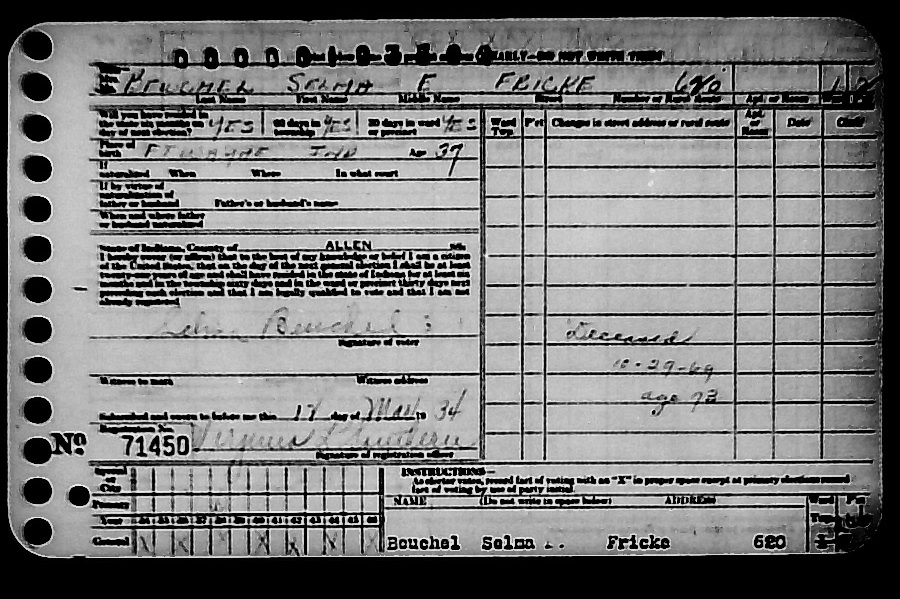 EARLY—DO NOT WRITE THESE
BEUCHEL SELMA E FRICKE 620
Last Name First Name Middle Name Street Number or Rural Route Apt. or Room
Will you have resided in
the state 6 months on YES 60 days in township YES 30 days in ward or precinct YES
day of next election?
Ward Twp. P'ct Changes in street address or rural route Apt. or Room Date Clerk
Place of birth FT WAYNE IND Age 37
If naturalized When Where In what court
If by virtue of
naturalization of
father or husband Father's or husband's name
When and where father
or husband naturalized
State of Indiana, County of ALLEN ss.
I hereby swear (or affirm) that to the best of my knowledge or belief I am a citizen
of the United States, that on the day of the next general election I shall be at least
twenty-one years of age and shall have resided in the state of Indiana for at least six
months and in the township sixty days and in the ward or precinct thirty days next
preceding such election and that I am legally qualified to vote and that I am not
already registered
Selma Beuchel
Signature of voter
Deceased
10-29-69
age 73
Witness to mark Witness address
Subscribed and sworn to before me this 12 day of May 19 34
Registration No.
No 71450 Virginia L.
Signature of registration officer
INSTRUCTIONS—
As elector votes, record fact of voting with an "X" in proper space except at primary elections record
fact of voting by use of party initial.
Special or City
Primary
NAME (Do not write in space below) ADDRESS Ward P'ct
Year 34 35 36 37 38 39 40 41 42 43 44 45 46
General X X X X X X X
Beuchel Selma E. Fricke 620